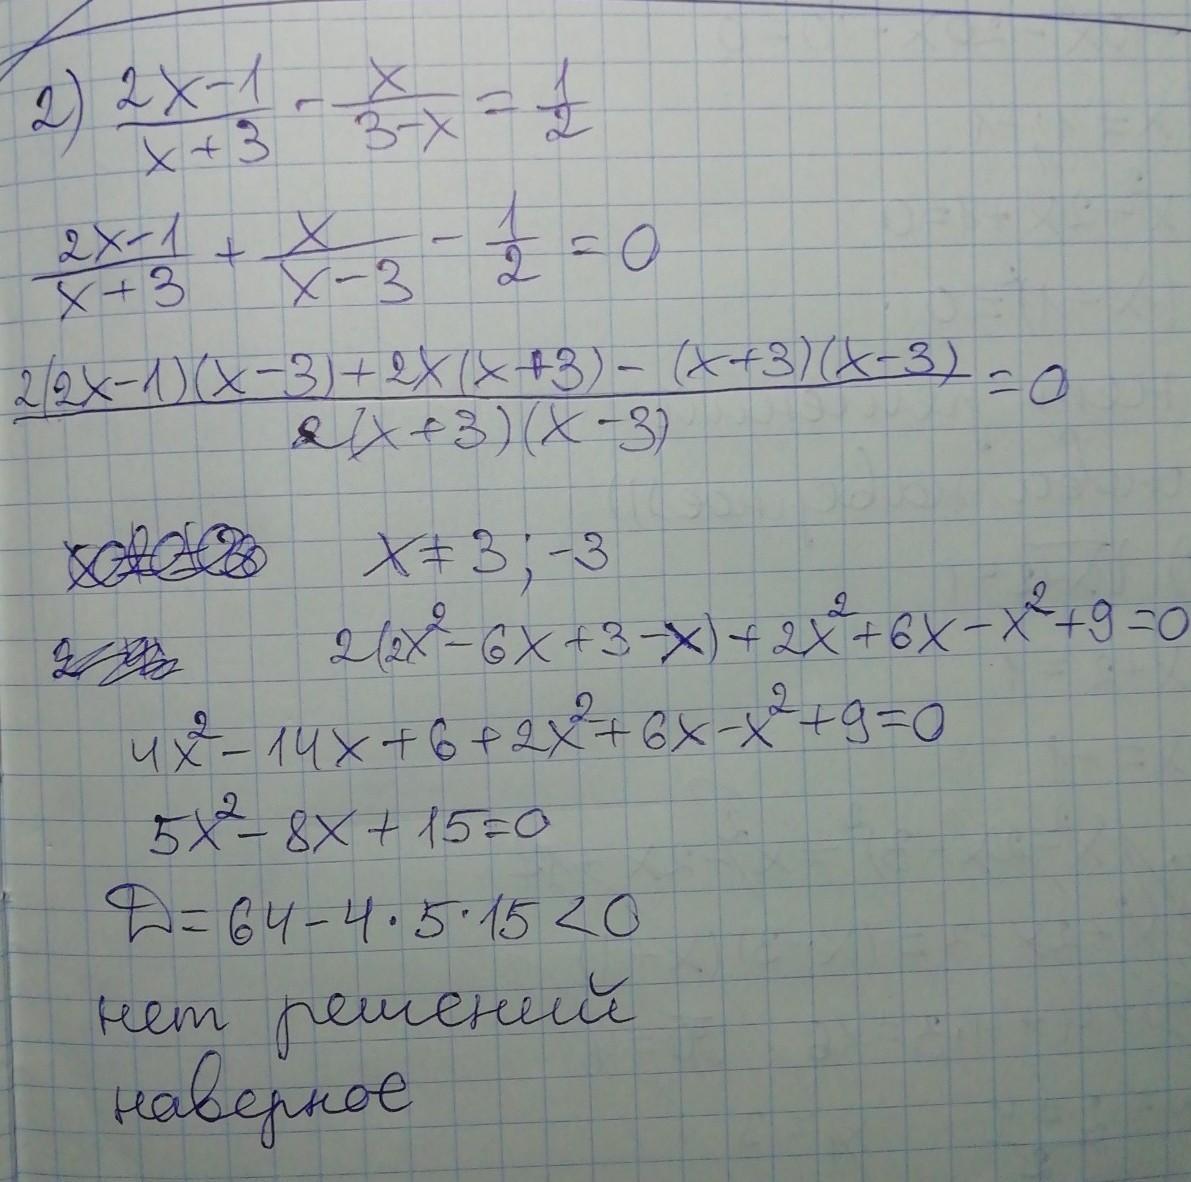 2) (2x-1)/(x+3) - x/(3-x) = 1/2
(2x-1)/(x+3) + x/(x-3) - 1/2 = 0
(2(2x-1)(x-3)+2x(x+3)-(x+3)(x-3))/(2(x+3)(x-3)) = 0
x≠3;-3
2(2x²-6x+3-x)+2x²+6x-x²+9=0
4x²-14x+6+2x²+6x-x²+9=0
5x²-8x+15=0
D=64-4·5·15<0
нет решений
наверное